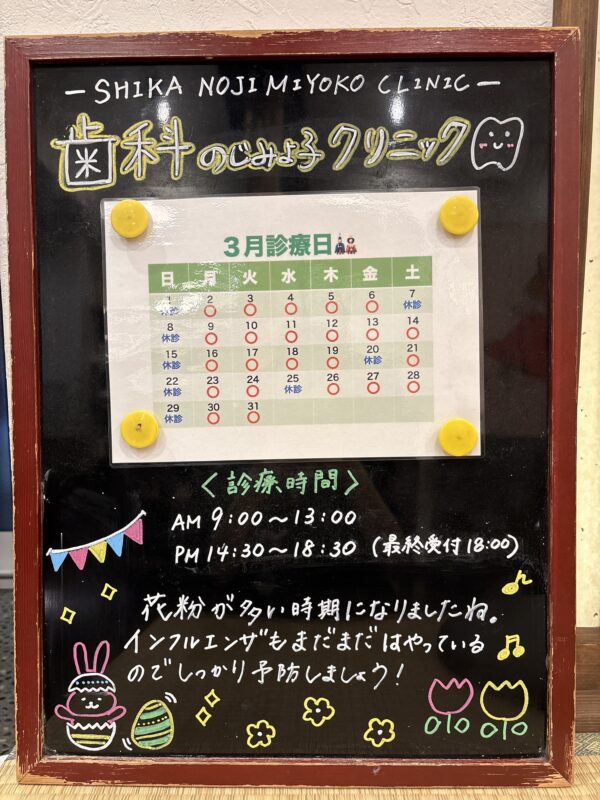 －SHIKA NOJI MIYOKO CLINIC－
歯科のじみよ子クリニック
3月診療日
日 月 火 水 木 金 土
1 2 3 4 5 6 7
休診 ○ ○ ○ ○ ○ 休診
8 9 10 11 12 13 14
休診 ○ ○ ○ ○ ○ ○
15 16 17 18 19 20 21
休診 ○ ○ ○ ○ 休診 ○
22 23 24 25 26 27 28
休診 ○ ○ 休診 ○ ○ ○
29 30 31
休診 ○ ○
〈診療時間〉
AM 9:00～13:00
PM 14:30～18:30 (最終受付18:00)
花粉が多い時期になりましたね。
インフルエンザもまだまだはやっている
のでしっかり予防しましょう!